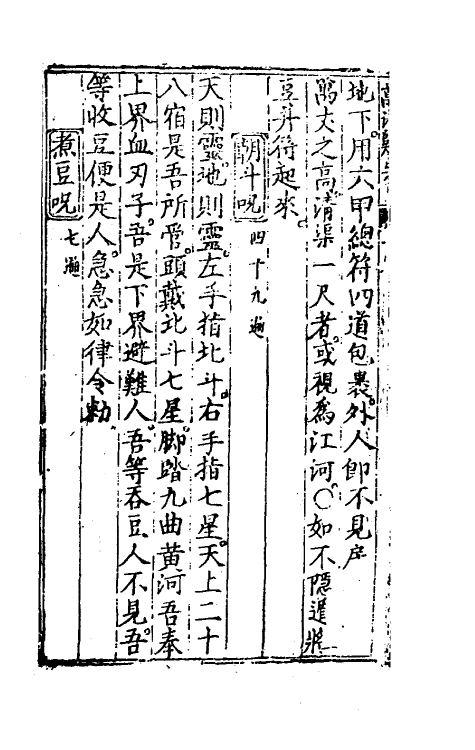 地下用六甲總符四道包裹。外人卽不見戶
萬丈之高。清渠一尺者。或視爲江河。○如不隱遁將
豆并符起來。
朝斗呪 四十九遍
天則靈。地則靈。左手指北斗。右手指七星。天上二十
八宿是吾所管。頭戴北斗七星。脚踏九曲黄河吾奉
上界血刃子。吾是下界避難人。吾等吞豆人不見吾。
等收豆便是人。急急如律令勅
煮豆呪 七遍